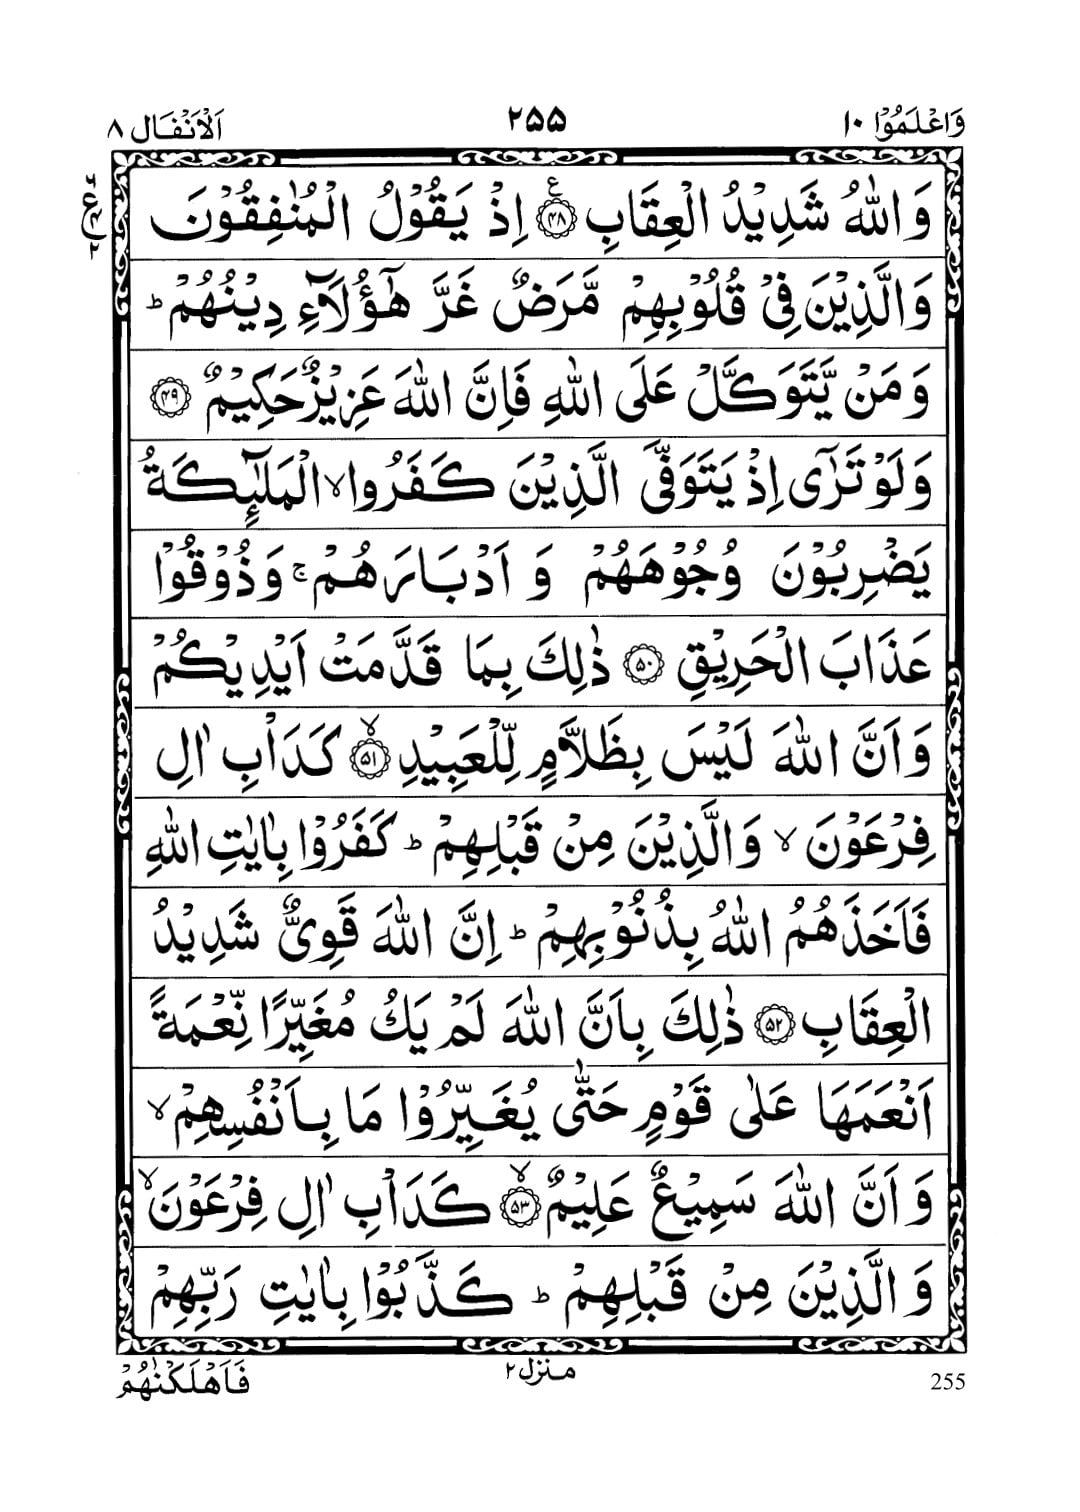 وَاعْلَمُوْۤا ۱۰ ۲۵۵ اَلْاَنْفَال ۸
وَاللّٰهُ شَدِيْدُ الْعِقَابِ ﴿۴۸﴾ۧ اِذْ يَقُوْلُ الْمُنٰفِقُوْنَ
وَالَّذِيْنَ فِيْ قُلُوْبِهِمْ مَّرَضٌ غَرَّ هٰۤؤُلَآءِ دِيْنُهُمْ ؕ
وَمَنْ يَّتَوَكَّلْ عَلَى اللّٰهِ فَاِنَّ اللّٰهَ عَزِيْزٌ حَكِيْمٌ ﴿۴۹﴾
وَلَوْ تَرٰۤى اِذْ يَتَوَفَّى الَّذِيْنَ كَفَرُوا ۙ الْمَلٰٓئِكَةُ
يَضْرِبُوْنَ وُجُوْهَهُمْ وَ اَدْبَارَهُمْ ۚ وَذُوْقُوْا
عَذَابَ الْحَرِيْقِ ﴿۵۰﴾ ذٰلِكَ بِمَا قَدَّمَتْ اَيْدِيْكُمْ
وَاَنَّ اللّٰهَ لَيْسَ بِظَلَّامٍ لِّلْعَبِيْدِ ﴿۵۱﴾ۙ كَدَاْبِ اٰلِ
فِرْعَوْنَ ۙ وَالَّذِيْنَ مِنْ قَبْلِهِمْ ؕ كَفَرُوْا بِاٰيٰتِ اللّٰهِ
فَاَخَذَهُمُ اللّٰهُ بِذُنُوْبِهِمْ ؕ اِنَّ اللّٰهَ قَوِيٌّ شَدِيْدُ
الْعِقَابِ ﴿۵۲﴾ ذٰلِكَ بِاَنَّ اللّٰهَ لَمْ يَكُ مُغَيِّرًا نِّعْمَةً
اَنْعَمَهَا عَلٰى قَوْمٍ حَتّٰى يُغَيِّرُوْا مَا بِاَنْفُسِهِمْ ۙ
وَاَنَّ اللّٰهَ سَمِيْعٌ عَلِيْمٌ ﴿۵۳﴾ۙ كَدَاْبِ اٰلِ فِرْعَوْنَ ۙ
وَالَّذِيْنَ مِنْ قَبْلِهِمْ ؕ كَذَّبُوْا بِاٰيٰتِ رَبِّهِمْ
255 منزل ۲ فَاَهْلَكْنٰهُمْ